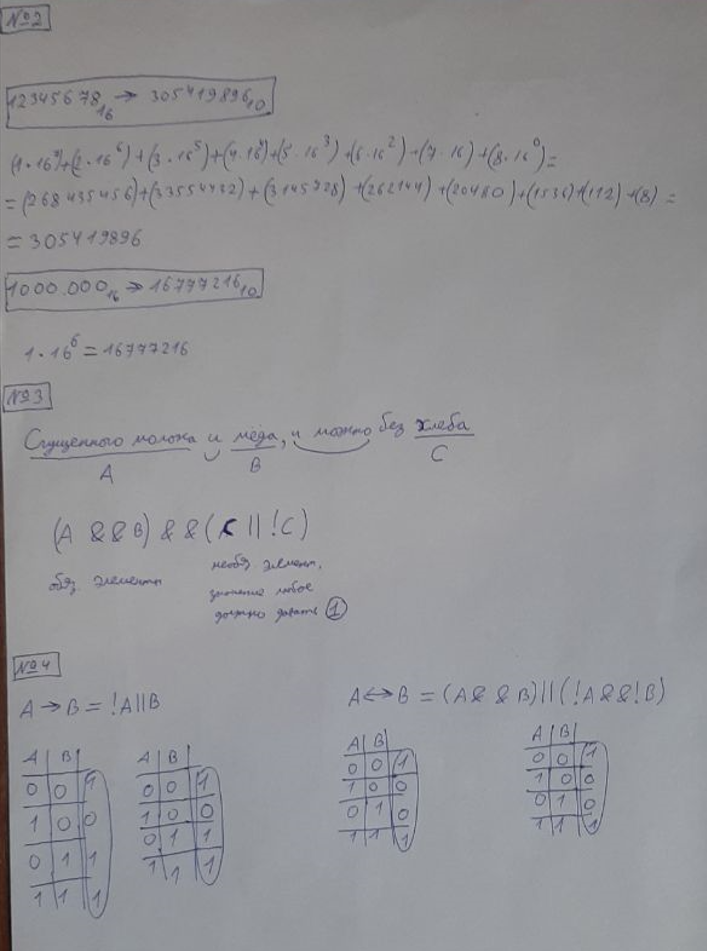 №2
12345678₁₆ → 305419896₁₀
(1·16⁷)+(2·16⁶)+(3·16⁵)+(4·16⁴)+(5·16³)+(6·16²)+(7·16)+(8·16⁰)=
=(268435456)+(33554432)+(3145728)+(262144)+(20480)+(1536)+(112)+(8)=
=305419896
1000.000₁₆ → 16777216₁₀
1·16⁶=16777216
№3
Сгущенного молока и мёда, и можно без хлеба
A B C
(A && B) && (C || !C)
обяз. элементы
необяз. элемент,
значение любое
должно давать 1
№4
A → B = !A||B
A ↔ B = (A && B)||(!A && !B)
A | B |
0 | 0 | 1
1 | 0 | 0
0 | 1 | 1
1 | 1 | 1
A | B |
0 | 0 | 1
1 | 0 | 0
0 | 1 | 1
1 | 1 | 1
A | B |
0 | 0 | 1
1 | 0 | 0
0 | 1 | 0
1 | 1 | 1
A | B |
0 | 0 | 1
1 | 0 | 0
0 | 1 | 0
1 | 1 | 1